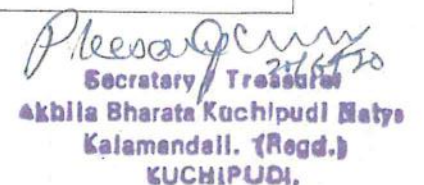 Secretary / Treasurer
Akhila Bharata Kuchipudi Natya
Kalamandali. (Regd.)
KUCHIPUDI.